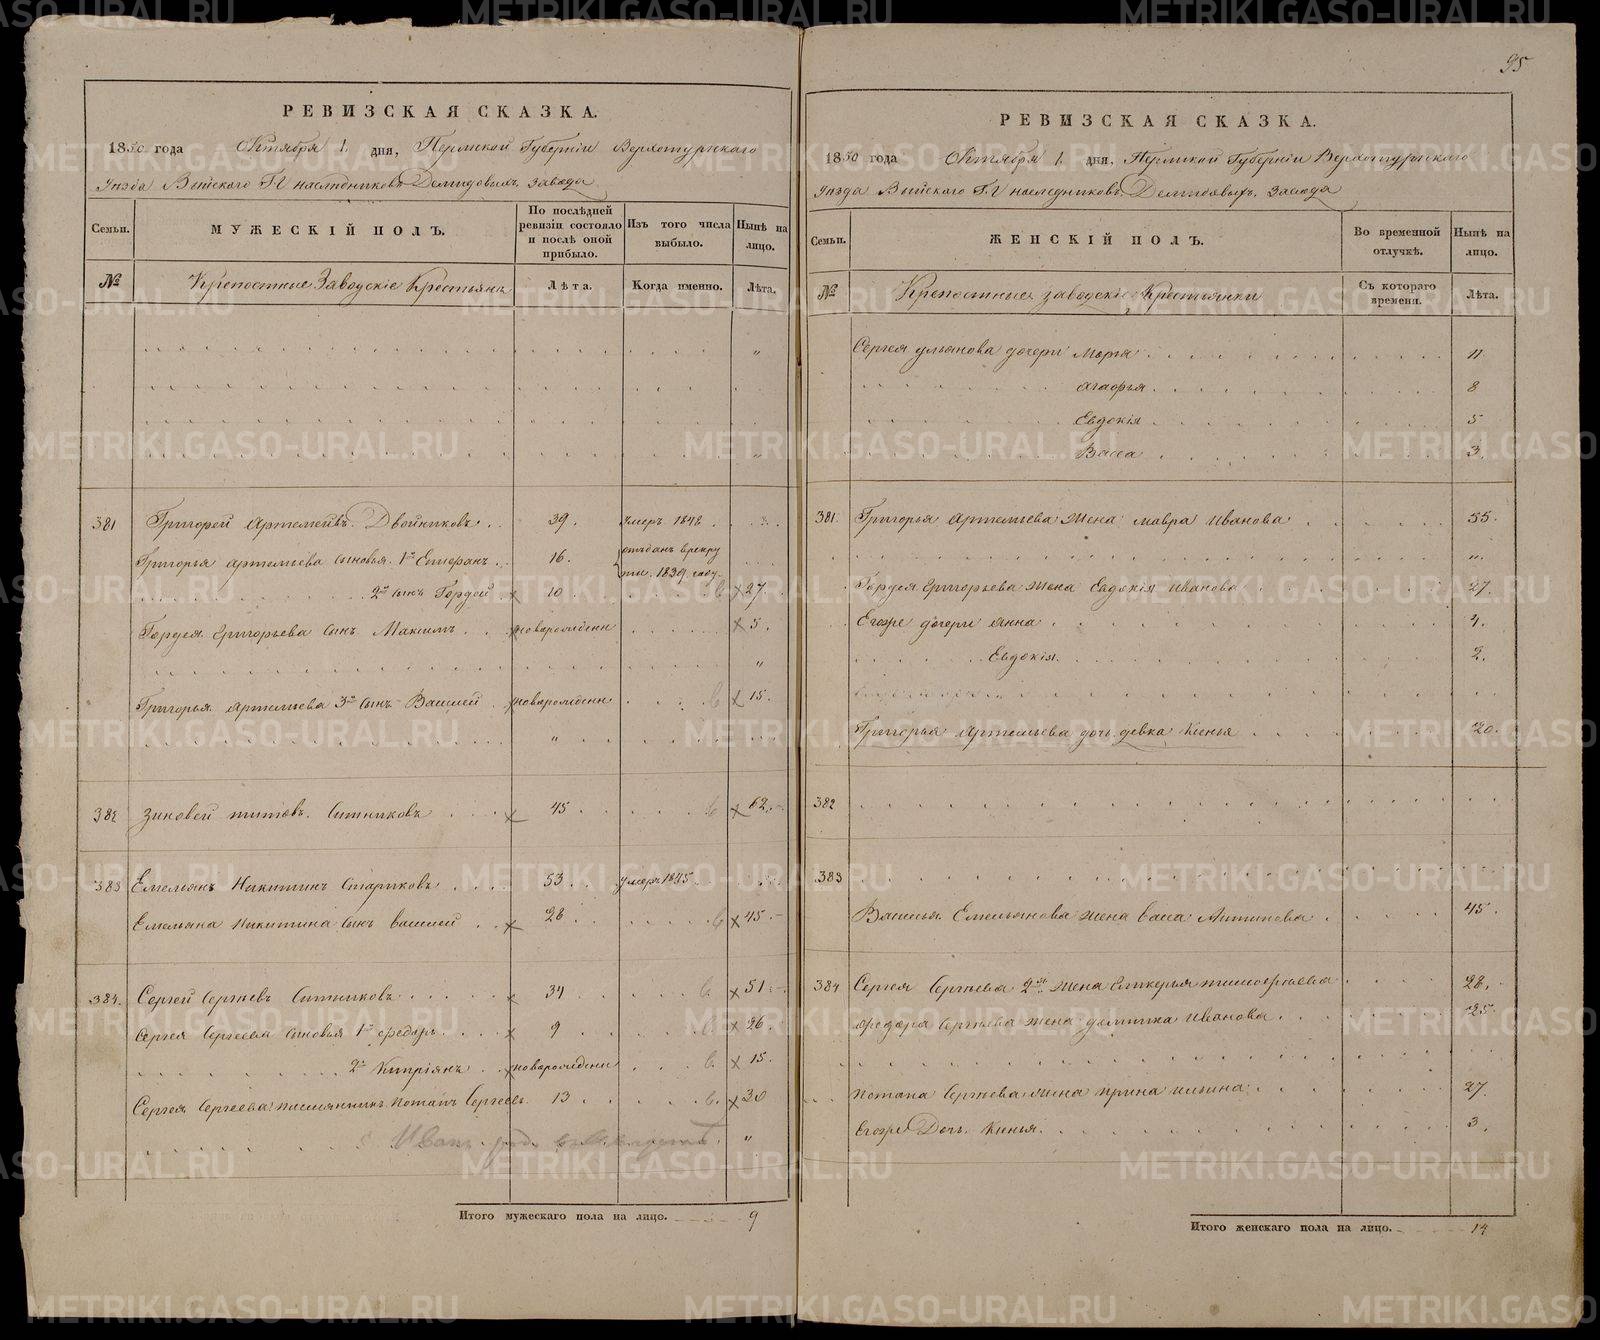 95
РЕВИЗСКАЯ СКАЗКА.
1850 года Октября 1 дня, Пермской Губерніи Верхотурскаго
уѣзда Выйскаго Г.Г наслѣдниковъ Демидовыхъ завода
Семьи.
МУЖЕСКІЙ ПОЛЪ.
По послѣдней ревизіи состояло и послѣ оной прибыло.
Изъ того числа выбыло.
Нынѣ на лицо.
№
Крепостные Заводскіе Крестьяне
Лѣта.
Когда именно.
Лѣта.
381 Григорей Артемьевъ Двойниковъ 39. умеръ 1848
Григорья Артемьева сыновья 1й Епифанъ 16. отданъ в рекру
ты 1839 году
2й сынъ Гордей 10 27
Гордея Григорьева сынъ Максимъ новорожденн 5.
Григорья Артемьева 3й сынъ Василей новорожденн 15.
382 Зиновей Титовъ Ситниковъ 45 62
383 Емельянъ Никитинъ Стариковъ 53 умеръ 1845
Емельяна Никитина сынъ Василей 28 45
384. Сергей Сергѣевъ Ситниковъ 34 51
Сергея Сергеева сыновья 1й Федоръ 9 26
2й Кипріянъ новорожденн 15
Сергея Сергеева племянникъ Потапъ Сергеевъ 13 30
Иванъ
Итого мужескаго пола на лицо. 9
РЕВИЗСКАЯ СКАЗКА.
1850 года Октября 1 дня, Пермской Губерніи Верхотурскаго
уѣзда Выйскаго Г.Г наследниковъ Демидовыхъ завода
Семьи.
ЖЕНСКІЙ ПОЛЪ.
Во временной отлучкѣ.
Нынѣ на лицо.
№
Крепостные заводскіе Крестьянки
Съ котораго времени.
Лѣта.
Сергея Ульянова дочери Марья 11
Агафья 8
Евдокія 5
Васса 3
381. Григорья Артемьева жена Мавра Иванова 55
Гордея Григорьева жена Евдокія Иванова 27
Егоже дочери Анна 4.
Евдокія 2.
Григорья Артемьева дочь девка Ксенья 20
382
383
Василья Емельянова жена Васа Антипова 45
384 Сергея Сергѣева 2я жена Гликерья Тимофѣева 28.
Федора Сергѣева жена Домника Иванова 25
Потапа Сергѣева жена Ирина Ильина 27
Егоже Дочь Ксенья 3
Итого женскаго пола на лицо. 14
METRIKI.GASO-URAL.RU